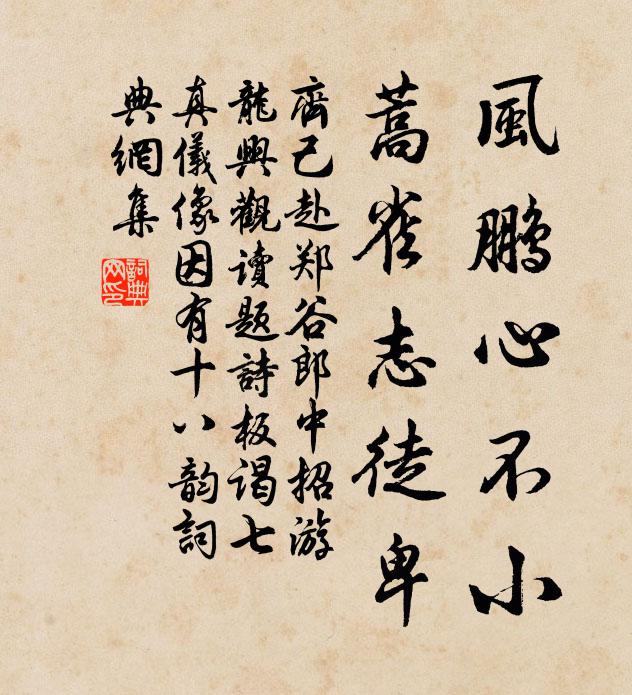 風鵬心不小
蒿雀志徒卑
齊己赴郑谷郎中招游
龍興觀讀題詩板謁七
真儀像因有十八韵詞
典網集
詞典
网印